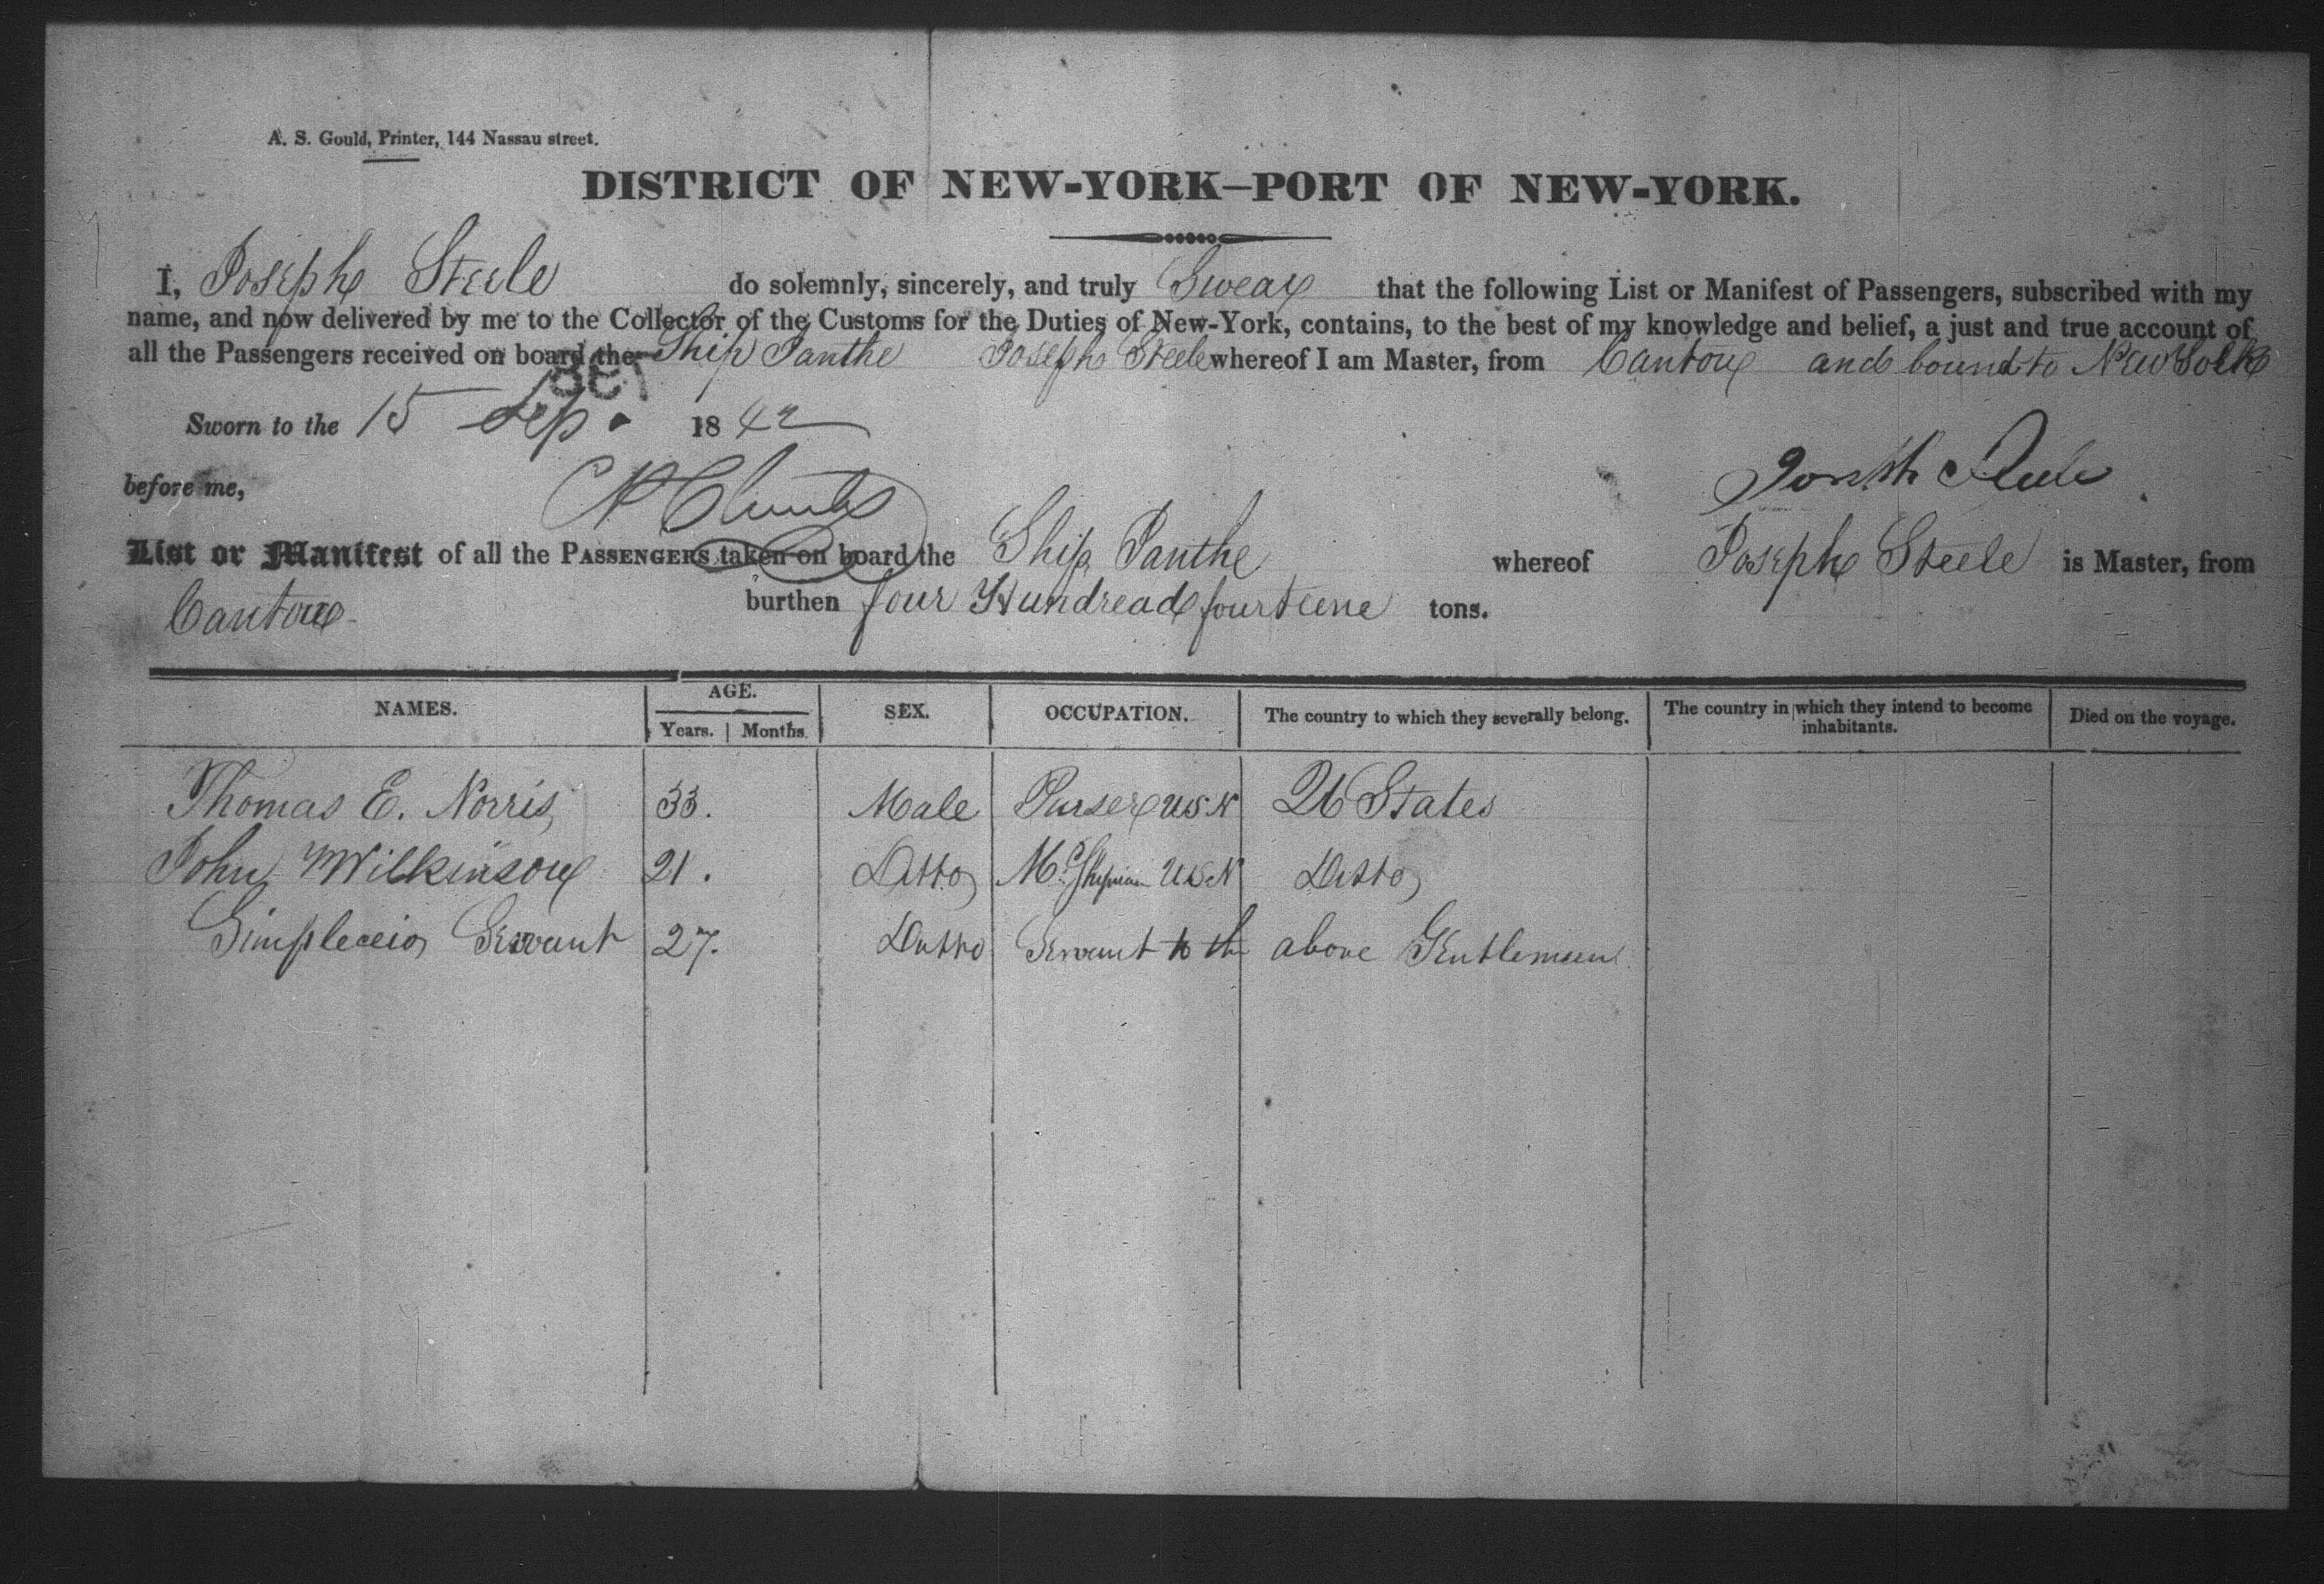 A. S. Gould, Printer, 144 Nassau street.
DISTRICT OF NEW-YORK—PORT OF NEW-YORK.
I, Joseph Steele do solemnly, sincerely, and truly Swear that the following List or Manifest of Passengers, subscribed with my
name, and now delivered by me to the Collector of the Customs for the Duties of New-York, contains, to the best of my knowledge and belief, a just and true account of
all the Passengers received on board the Ship Ianthe Joseph Steele whereof I am Master, from Canton and bound to New York
Sworn to the 15 Sep. 1842
before me,
Joseph Steele
List or Manifest of all the PASSENGERS taken on board the Ship Ianthe whereof Joseph Steele is Master, from
Canton burthen four Hundread fourteene tons.
NAMES. AGE. SEX. OCCUPATION. The country to which they severally belong. The country in which they intend to become inhabitants. Died on the voyage.
Years. Months.
Thomas E. Norris, 33. Male Purser U.S.N U States
John Wilkinson 21. Ditto Md Shipman U.S.N Ditto
Servant 27. Ditto Servant to the above Gentlemen